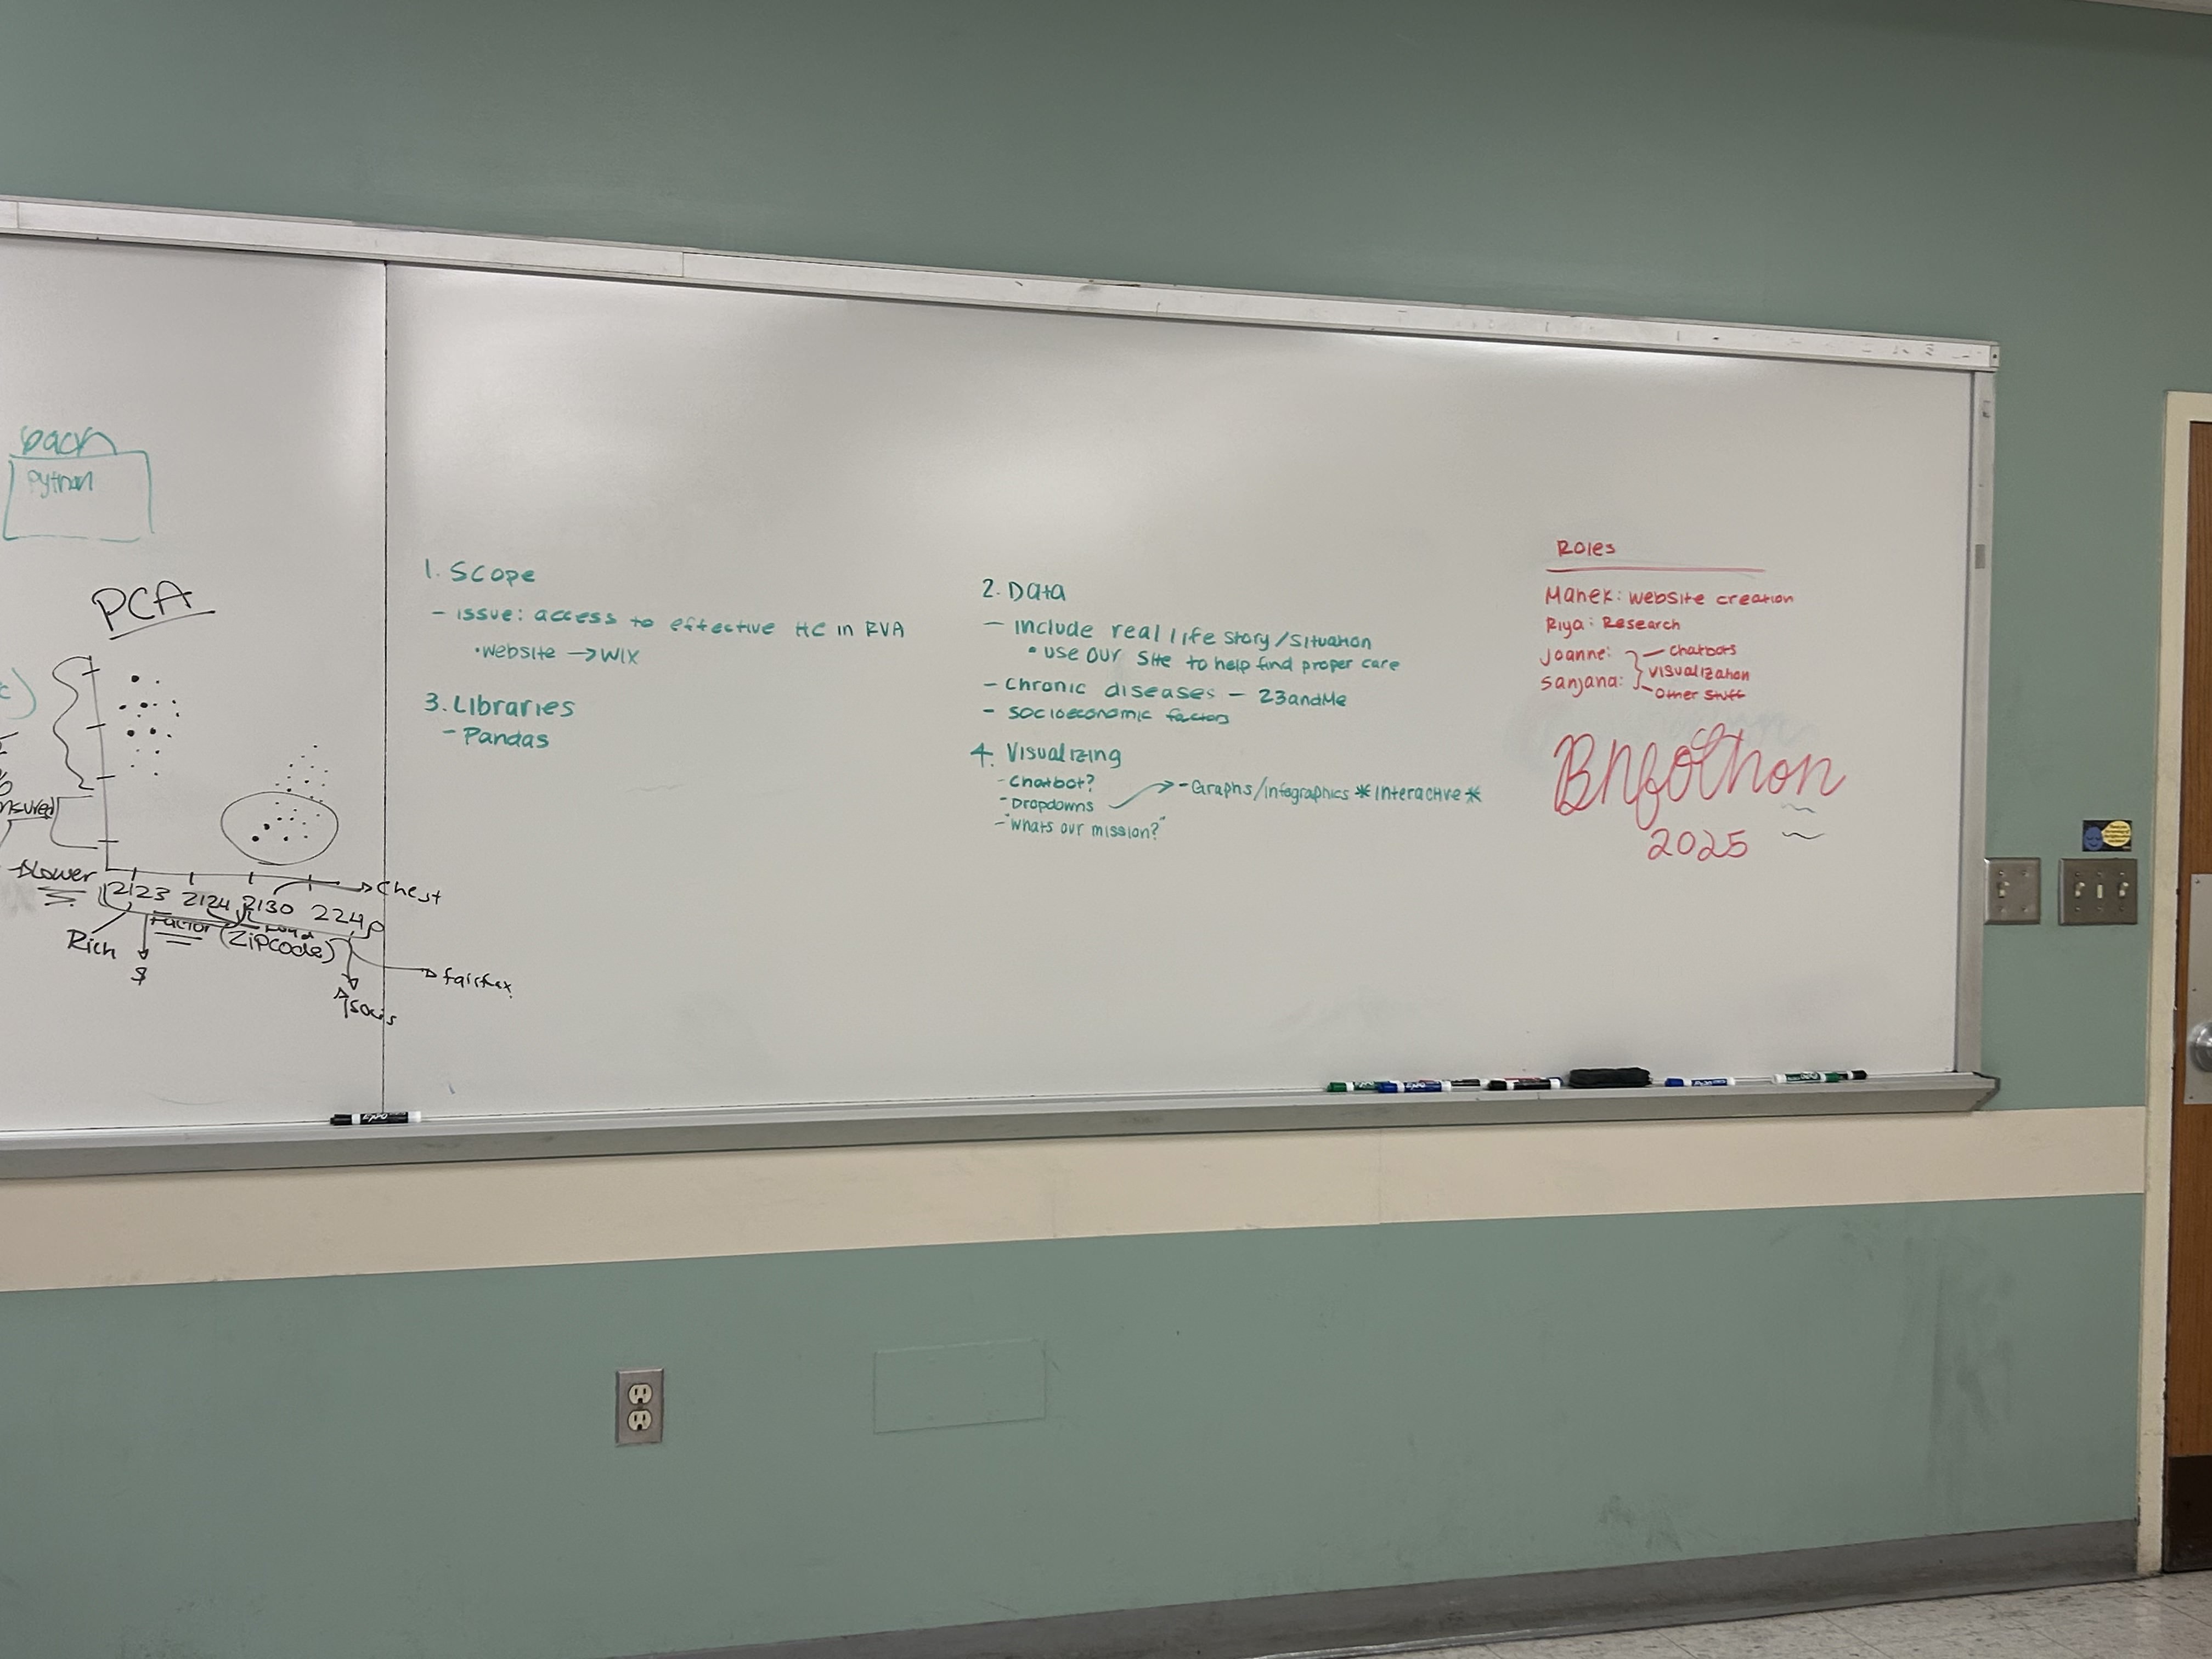 Python
PCA
Lower
2123 2124 2130 224
Chest
Factor
(Zipcode)
Rich
$
fairfax
1. Scope
- issue: access to effective HC in RVA
• website → WIX
3. Libraries
- Pandas
2. Data
- include real life story/situation
• use our site to help find proper care
- Chronic diseases - 23andMe
- socioeconomic factors
4. Visualizing
- Chatbot?
- Dropdowns → - Graphs/infographics *Interactive*
- "Whats our mission?"
Roles
Manek: website creation
Riya: Research
Joanne: - chatbots
} visualization
Sanjana: - other stuff
BNfothon
2025